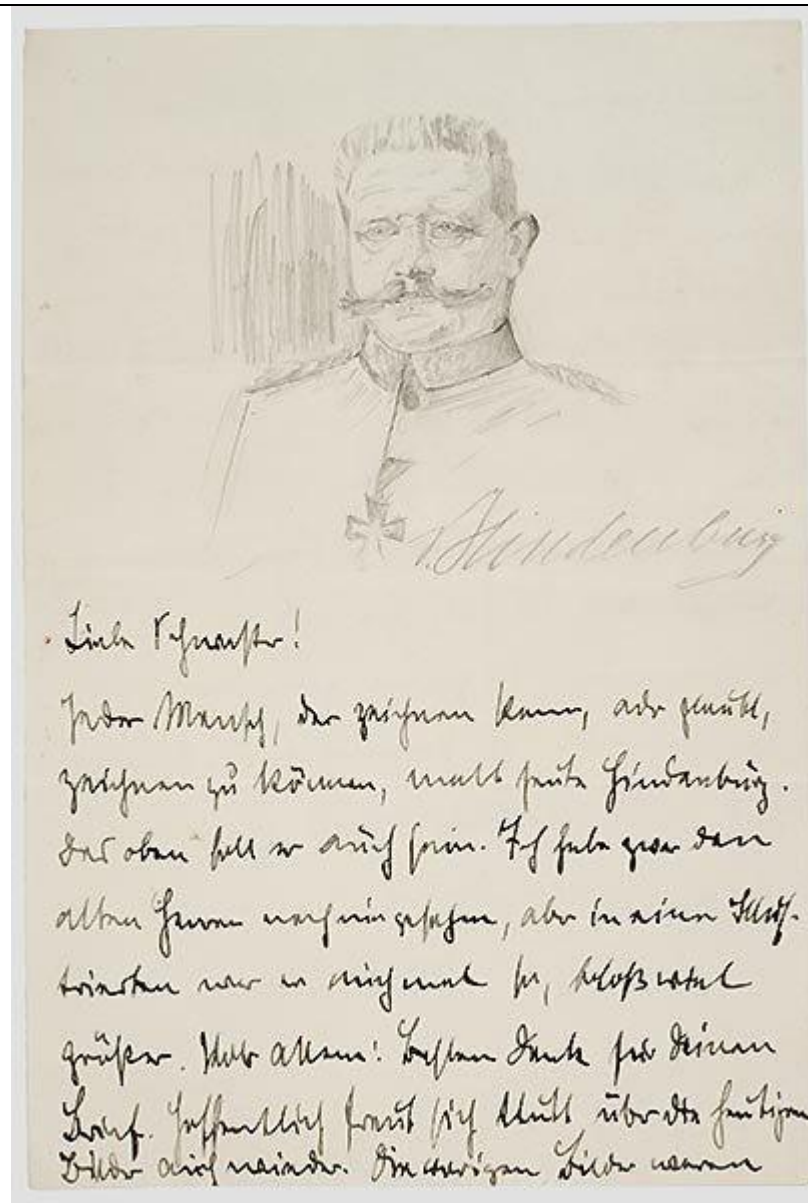 v. Hindenburg
Liebe Schwester!
Jeder Mensch, der zeichnen kann, oder glaubt,
zeichnen zu können, malt heute Hindenburg.
Das oben soll er auch sein. Ich habe zwar den
alten Herren noch nie gesehen, aber in einer Illus-
trierten war er auch mal so, bloß viel
größer. Vor allem: Besten Dank für Deinen
Brief. Hoffentlich freut sich über die heutigen
Bilder auch wieder. Die vorigen Bilder waren